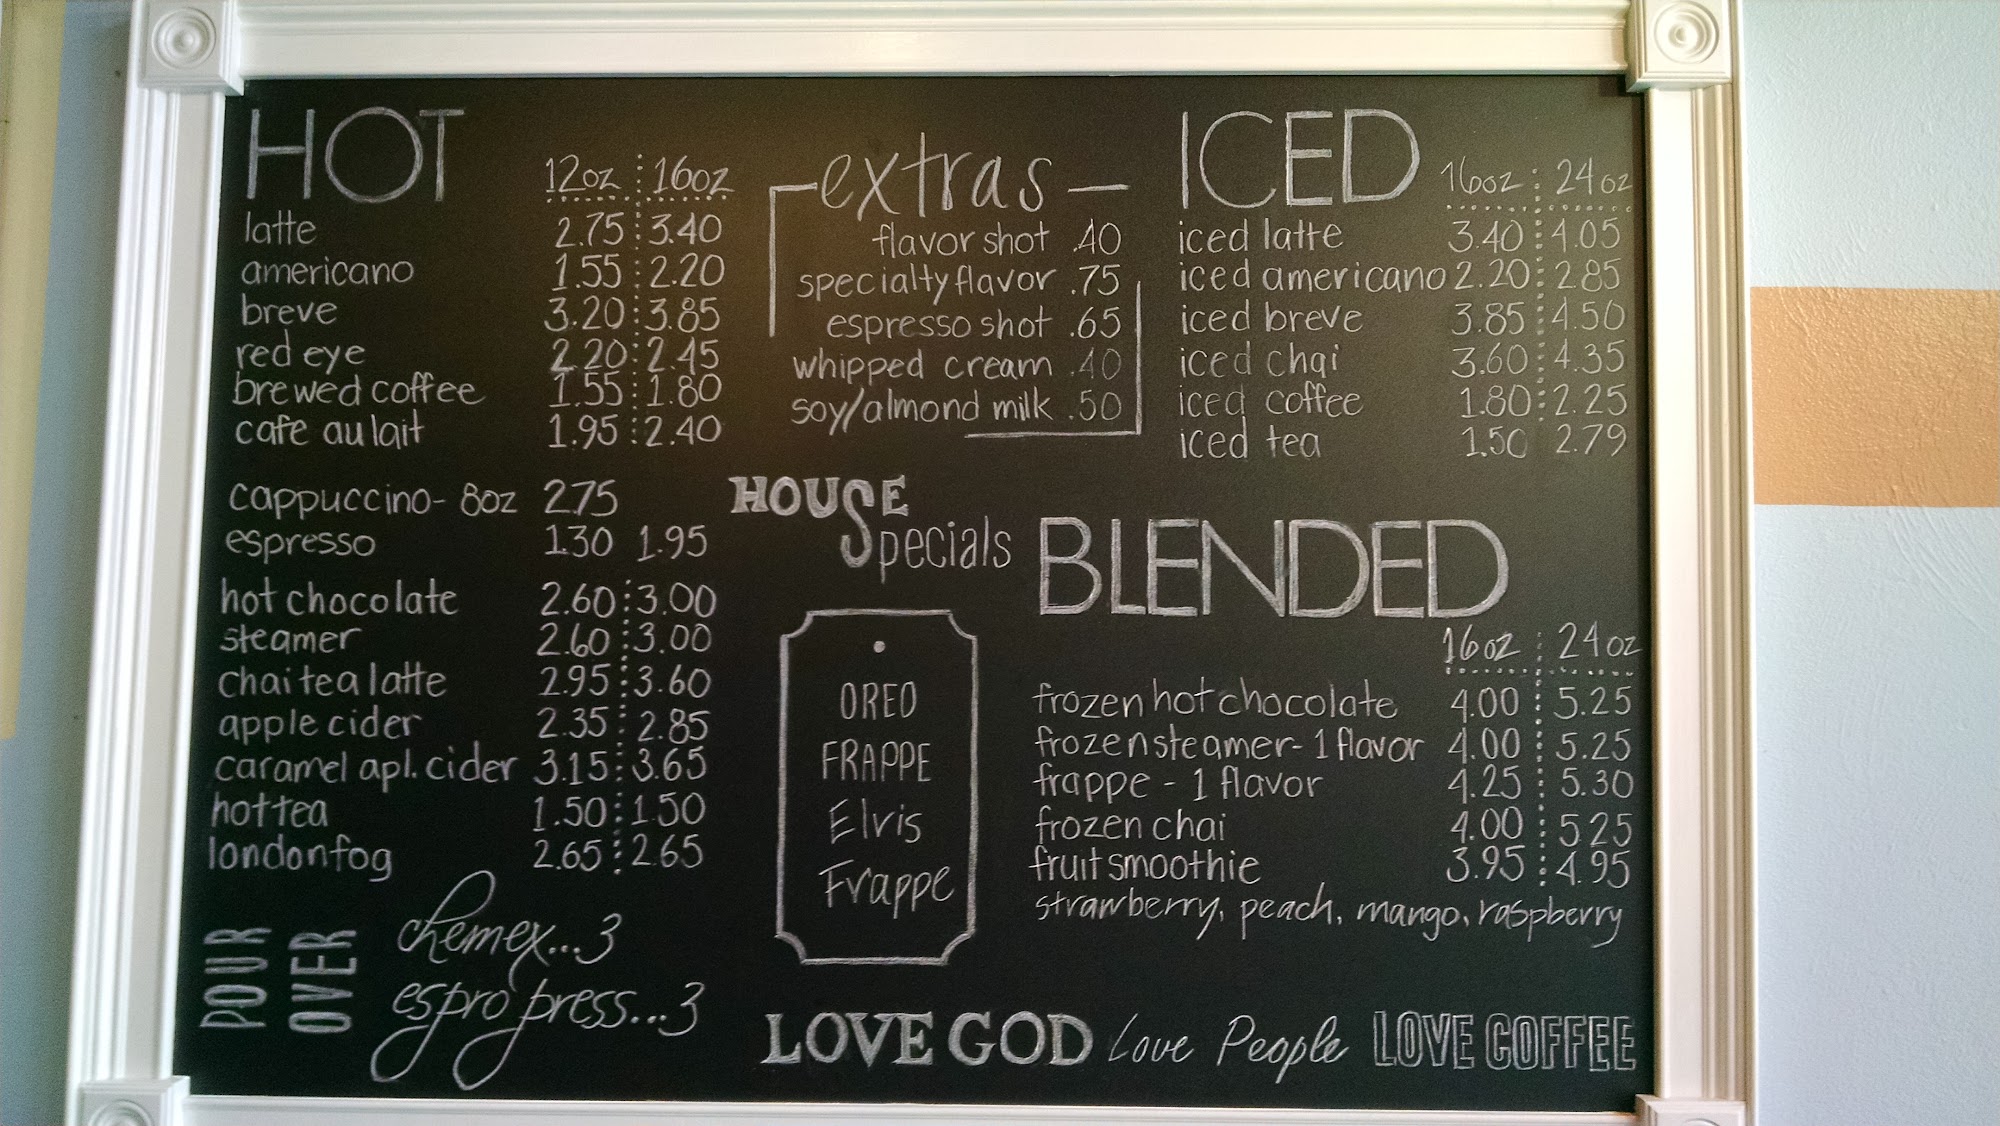 HOT
12oz 16oz
latte 2.75 3.40
americano 1.55 2.20
breve 3.20 3.85
red eye 2.20 2.45
brewed coffee 1.55 1.80
cafe au lait 1.95 2.40
cappuccino- 8oz 2.75
espresso 1.30 1.95
hot chocolate 2.60 3.00
steamer 2.60 3.00
chai tea latte 2.95 3.60
apple cider 2.35 2.85
caramel apl. cider 3.15 3.65
hot tea 1.50 1.50
london fog 2.65 2.65
POUR
OVER
chemex...3
espro press...3
extras
flavor shot .40
specialty flavor .75
espresso shot .65
whipped cream .40
soy/almond milk .50
HOUSE
Specials
OREO
FRAPPE
Elvis
Frappe
ICED
16oz 24oz
iced latte 3.40 4.05
iced americano 2.20 2.85
iced breve 3.85 4.50
iced chai 3.60 4.35
iced coffee 1.80 2.25
iced tea 1.50 2.79
BLENDED
16oz 24oz
frozen hot chocolate 4.00 5.25
frozen steamer- 1 flavor 4.00 5.25
frappe - 1 flavor 4.25 5.30
frozen chai 4.00 5.25
fruit smoothie 3.95 4.95
strawberry, peach, mango, raspberry
LOVE GOD Love People LOVE COFFEE